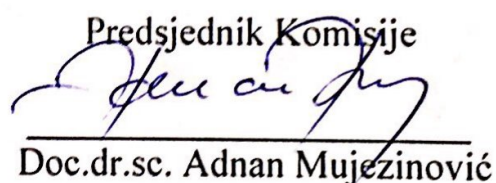 Predsjednik Komisije
Doc.dr.sc. Adnan Mujezinović